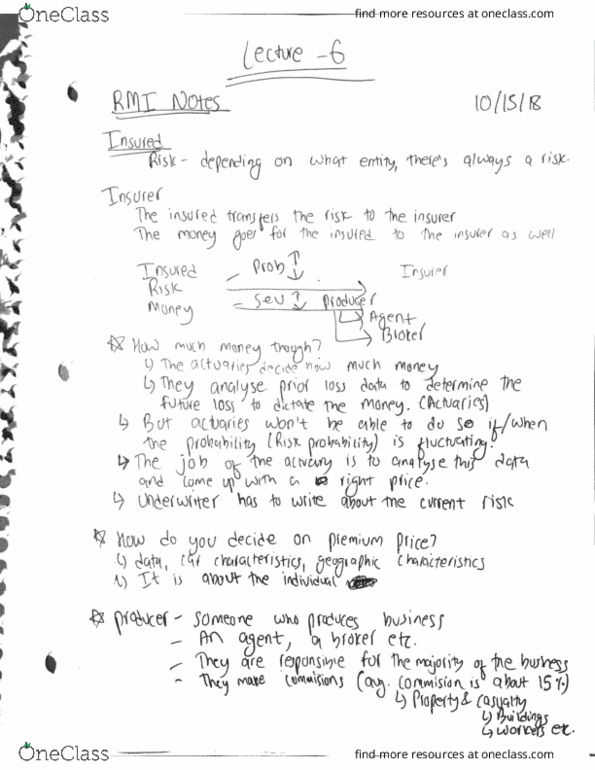 OneClass
find more resources at oneclass.com
Lecture - 6
RMI Notes 10/15/18
Insured
Risk - depending on what entity, there's always a risk.
Insurer
The insured transfers the risk to the insurer
The money goes for the insured to the insurer as well
Insured - Prob ↑↓ Insurer
Risk
Money = Sev ↑↓ Producer
↳ Agent
↳ Broker
☆ How much money though?
↳ The actuaries decide how much money
↳ They analyse prior loss data to determine the
future loss to dictate the money. (Actuaries)
↳ But actuaries won't be able to do so if/when
the probability (Risk probability) is fluctuating.
↳ The job of the actuary is to analyse this data
and come up with a right price.
↳ Underwriter has to write about the current risk
☆ How do you decide on premium price?
↳ data, car characteristics, geographic characteristics
↳ It is about the individual
☆ producer - someone who produces business
- An agent, a broker etc.
- They are responsible for the majority of the business
- They make commisions (avg. commision is about 15%)
↳ Property & casualty
↳ Buildings
↳ workers etc.
OneClass
find more resources at oneclass.com